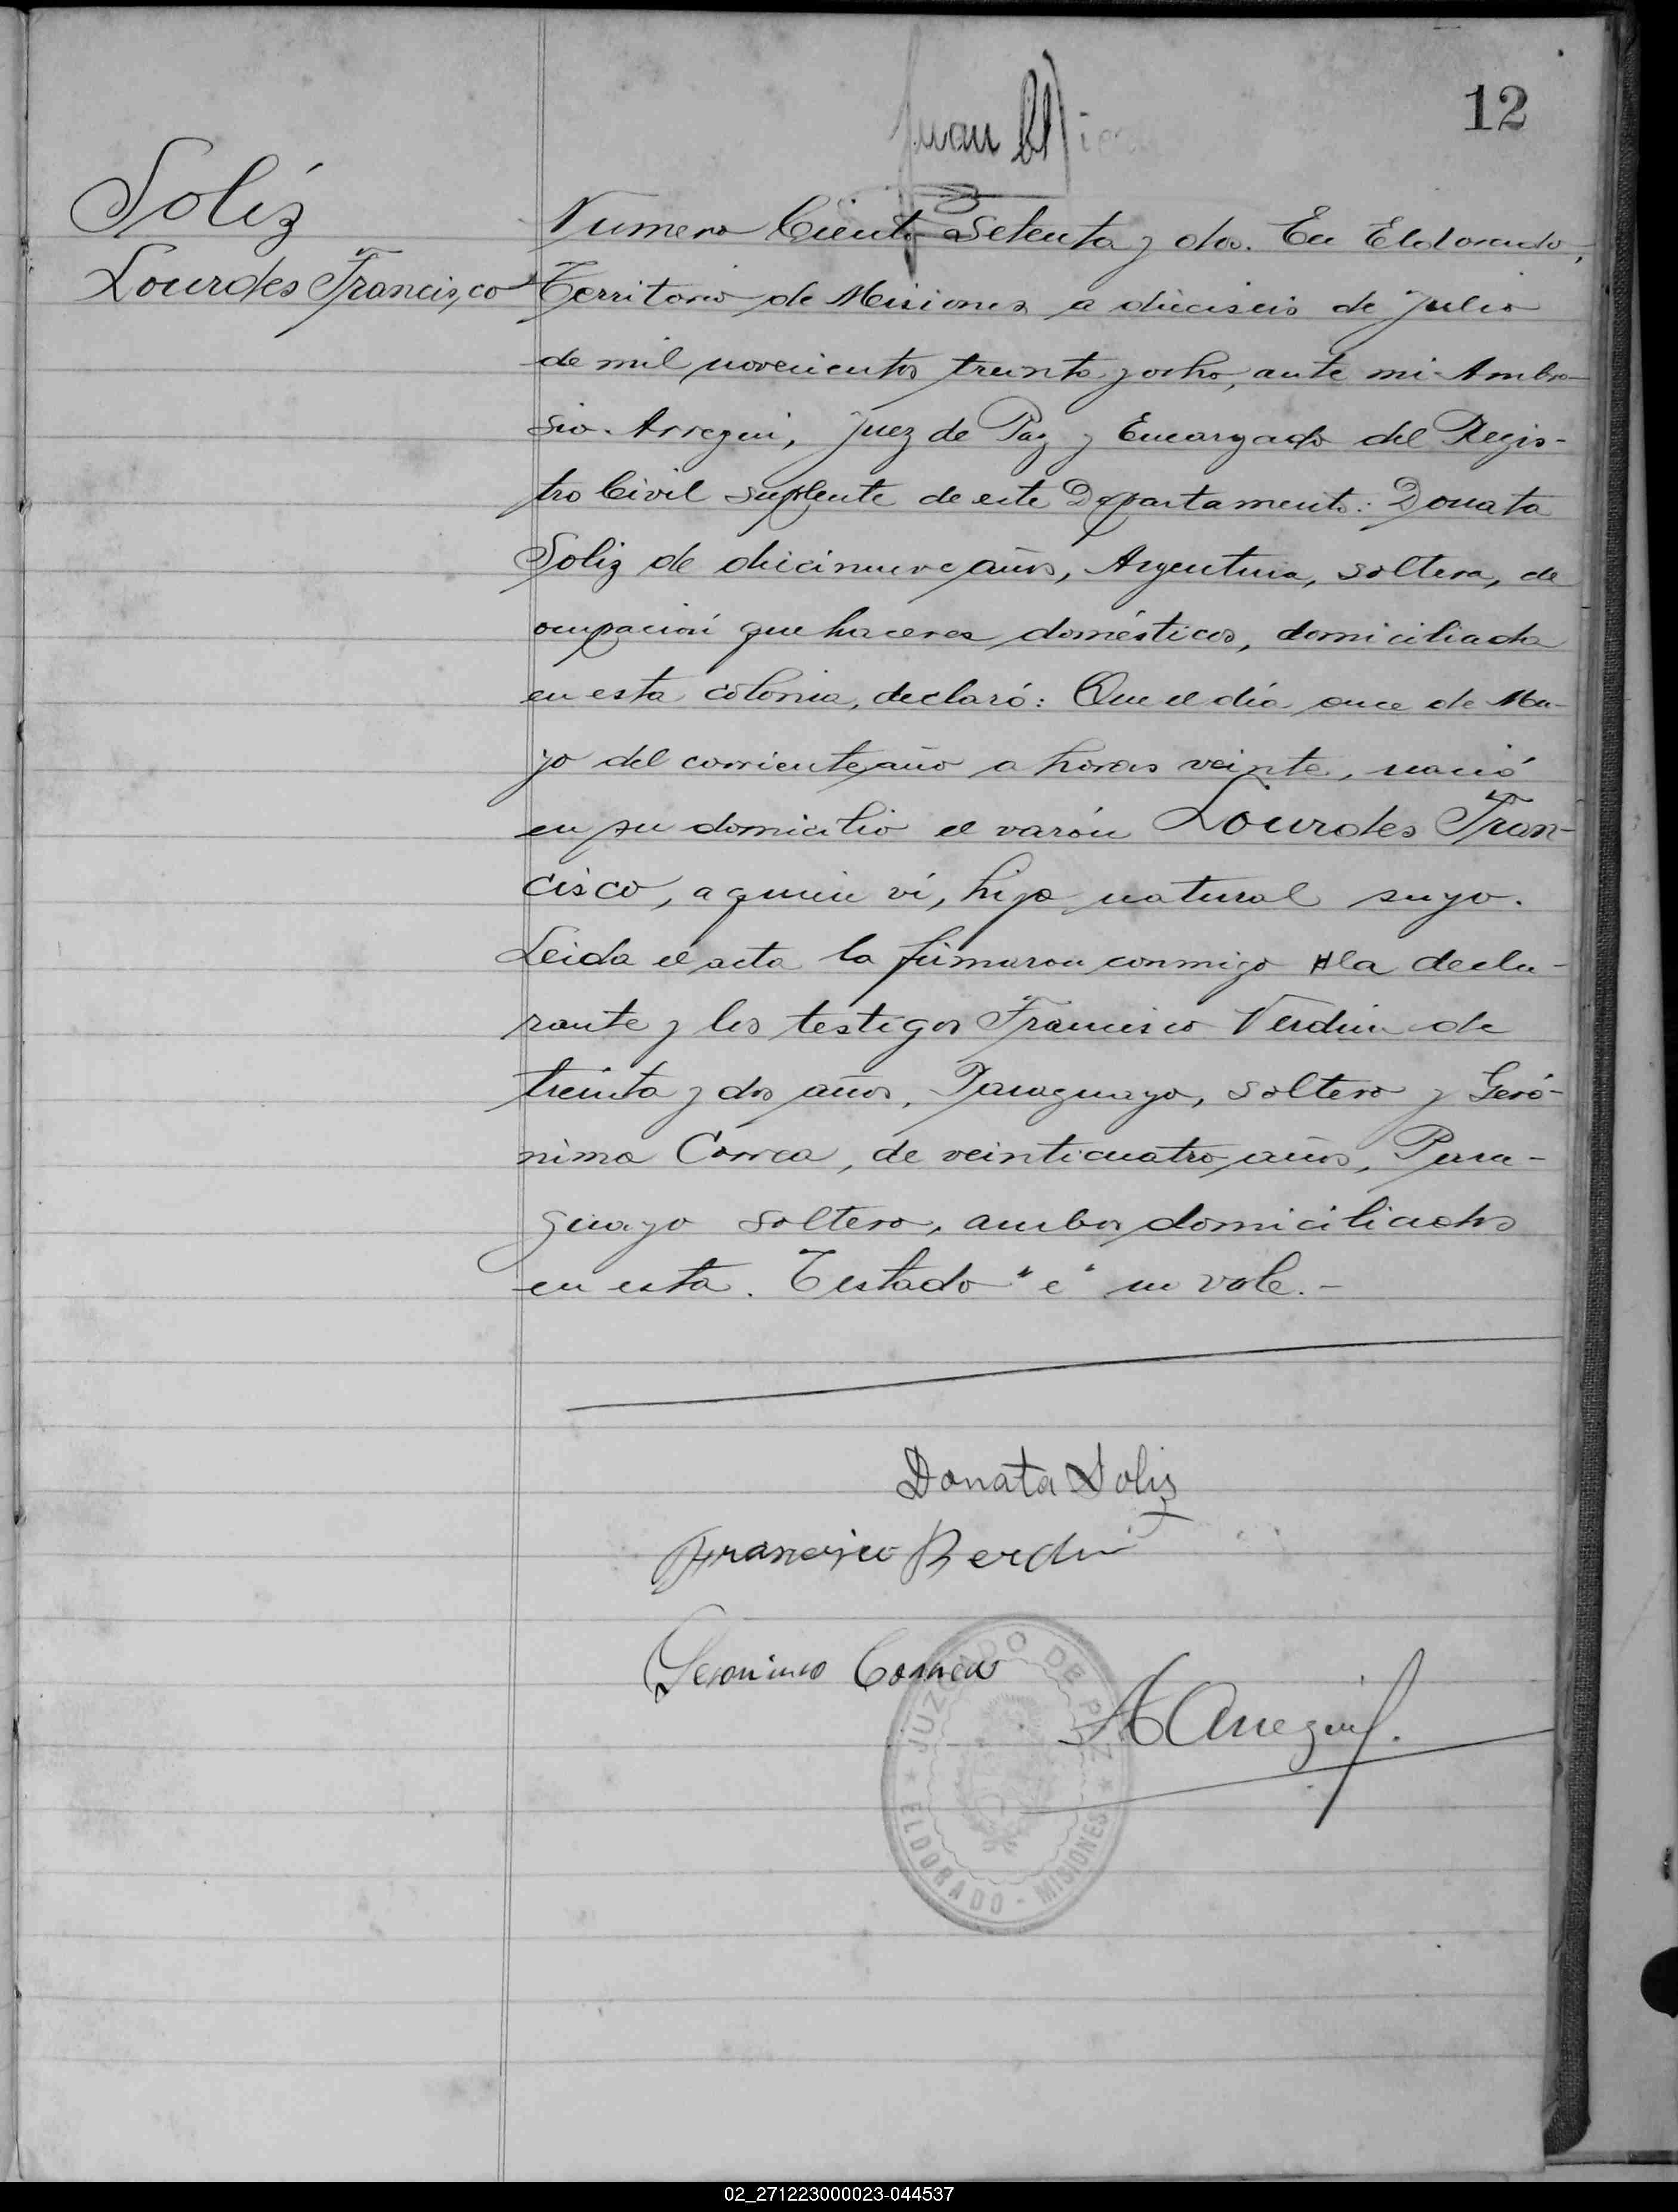 12
Juan
Soliz
Lourdes Francisco
Numero Ciento Setenta y dos. En Eldorado,
Territorio de Misiones a dieciseis de Julio
de mil novecientos treinta y ocho, ante mi Ambro-
sio Arregui, Juez de Paz y Encargado del Regis-
tro Civil suplente de este Departamento: Donata
Soliz de diecinueve años, Argentina, soltera, de
ocupación quehaceres domésticos, domiciliada
en esta colonia, declaró: Que el día once de Ma-
yo del corriente año a horas veinte, nació
en su domicilio el varón Lourdes Fran-
cisco, a quien ví, hijo natural suyo.
Leida el acta la firmaron conmigo la decla-
rante y los testigos Francisco Verdún de
treinta y dos años, Paraguayo, soltero y Geró-
nimo Correa, de veinticuatro años, Para-
guayo soltero, ambos domiciliados
en esta. Testado "e" no vale.-
Donata Solis
Francisco Berdun
Geronimo Correa
A Arregui
JUZGADO DE PAZ
ELDORADO - MISIONES
02_271223000023-044537